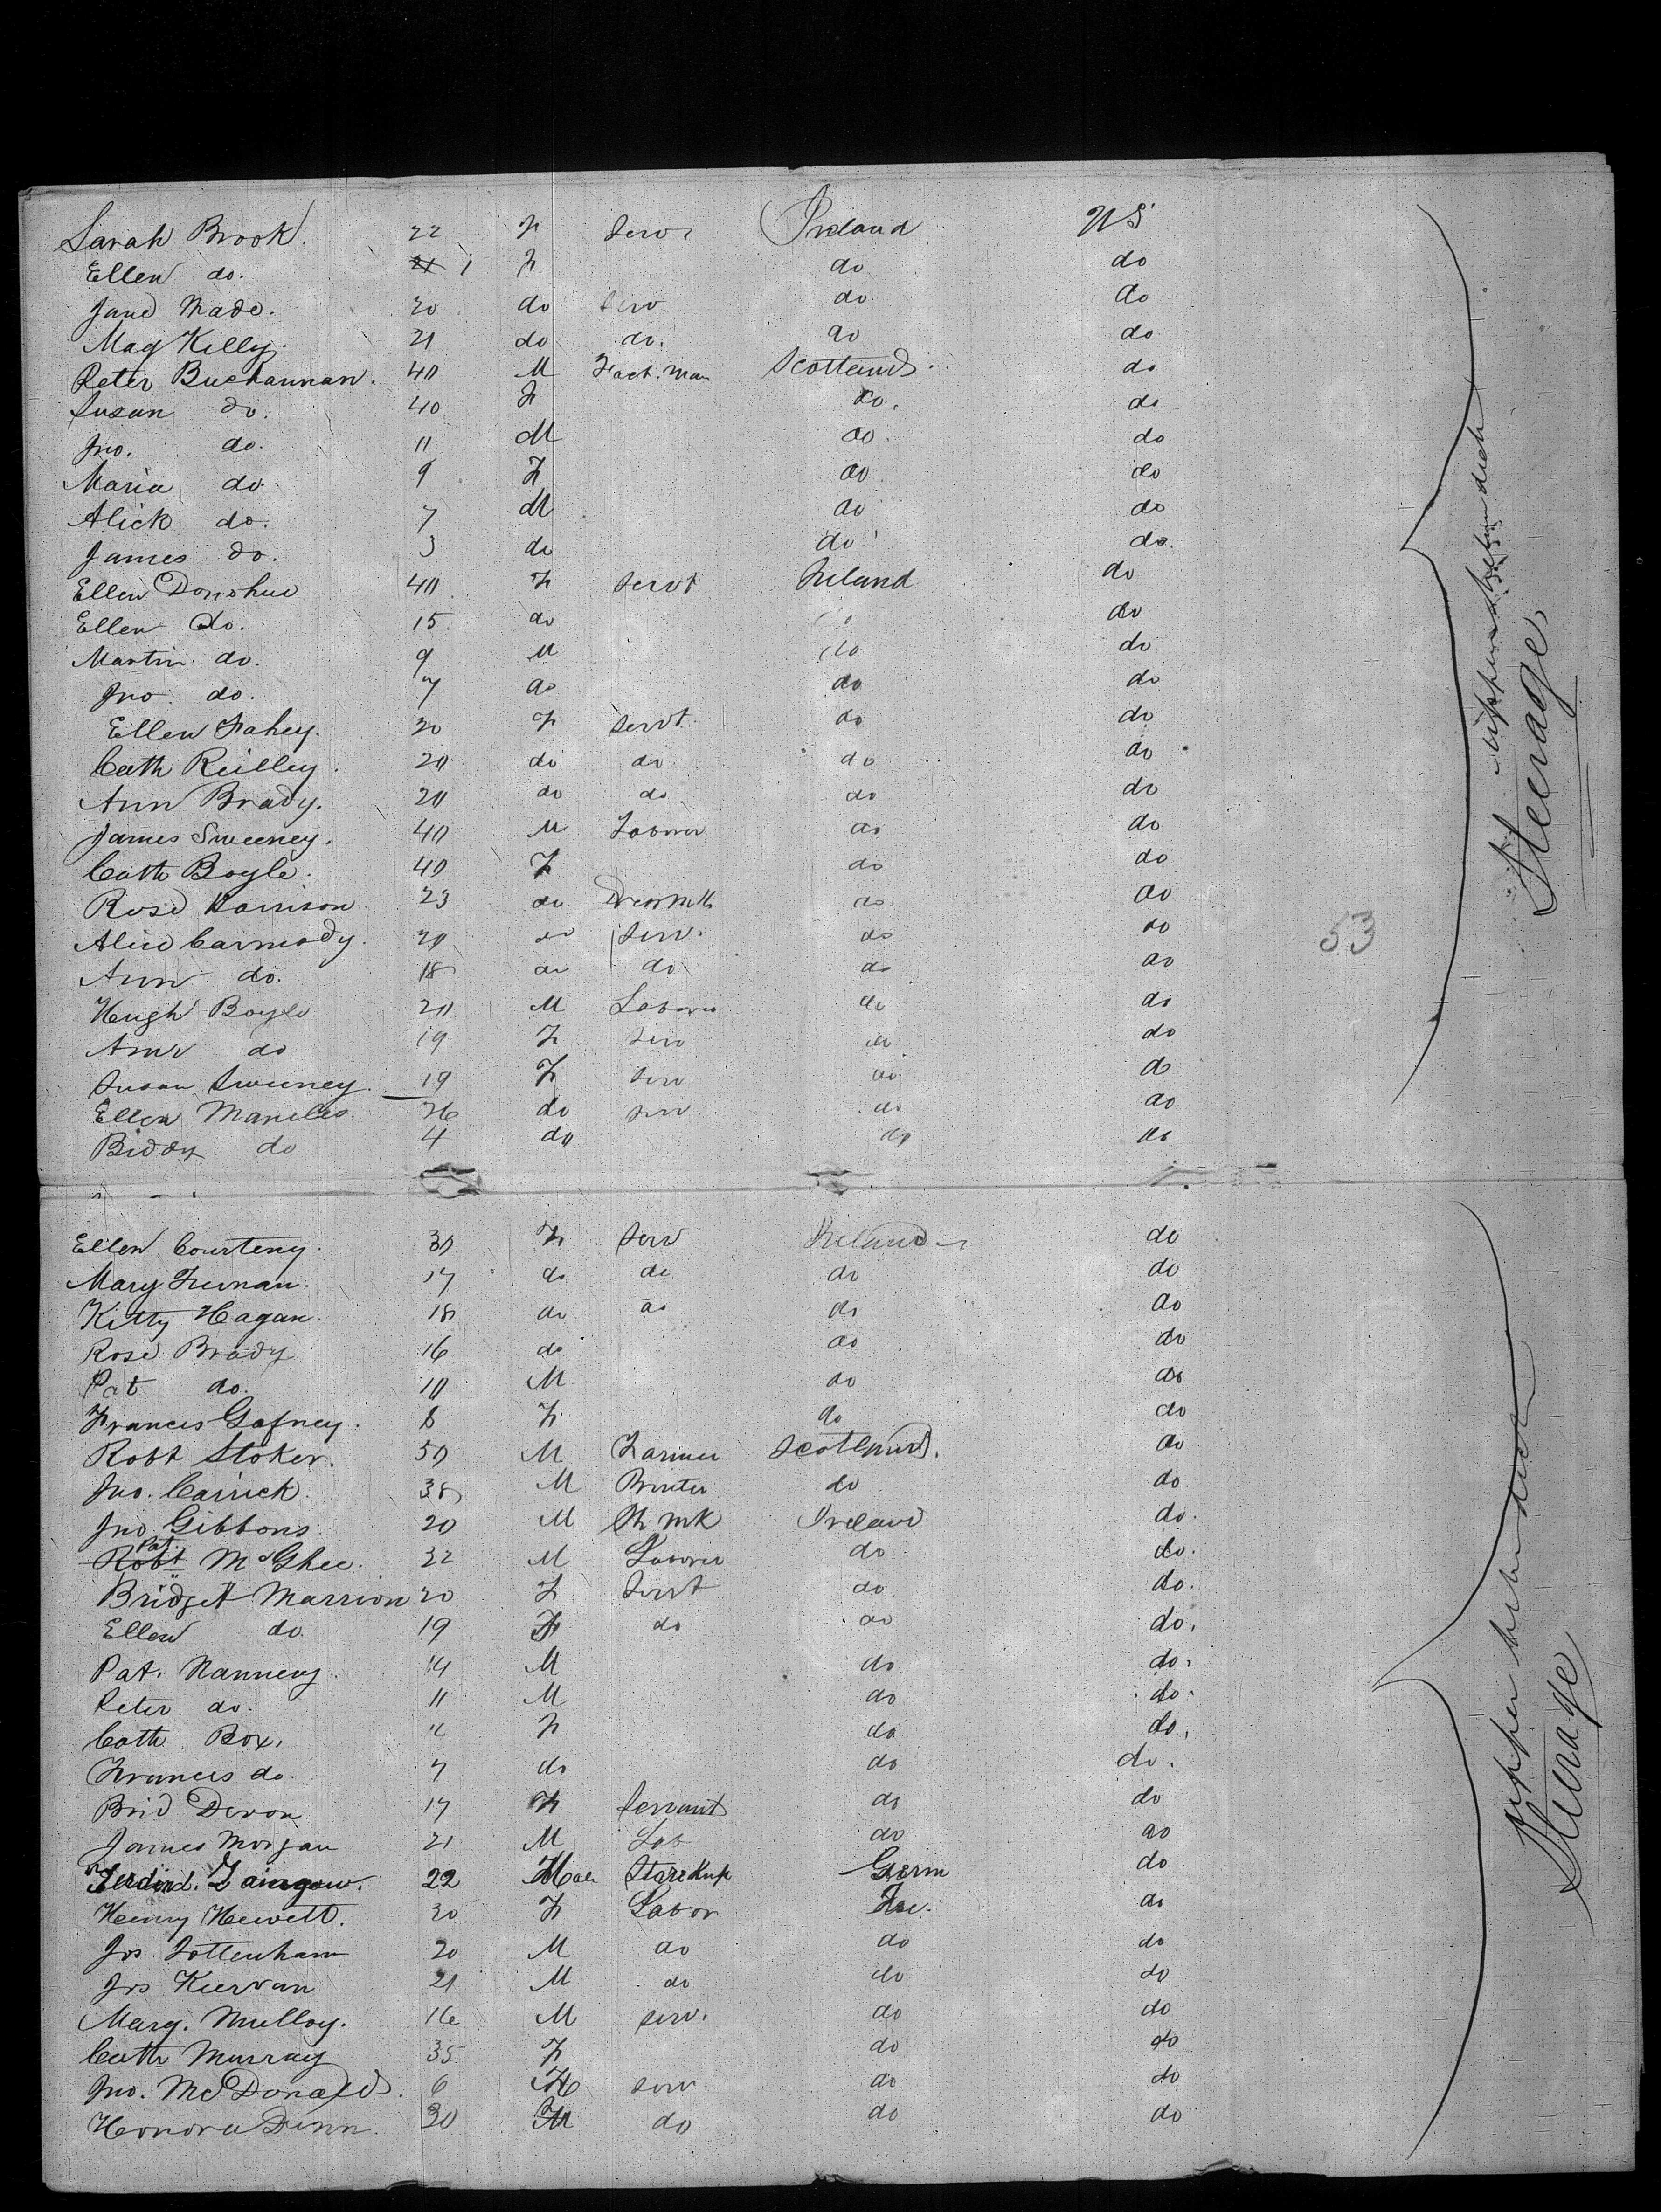 Sarah Brook. 22 F Serv Ireland US
Ellen do. 1 F do do
Jane Wade. 20 do Serv do do
Mag Kelly. 21 do do. do do
Peter Buchannan. 40 M Fact. Man Scotland. do
Susan do. 40 F do. do
Jno. do. 11 M do. do
Maria do 9 F do do
Alick do. 7 M do do
James do. 3 do do do.
Ellen Donohue 40 F Servt Ireland do
Ellen do. 15 do do do
Martin do. 9 M do do
Jno do. 7 do do do
Ellen Fahey. 20 F Servt. do do
Cath Reilley. 20 do do do do
Ann Brady. 20 do do do do
James Sweeney. 40 M Laborer do do
Cath Boyle. 40 F do do
Rose Harrison 23 do do do
Alice Carmody. 20 do Serv. do do
53
Ann do. 18 do do do do
Hugh Boyle 20 M Laborer do do
Ann do 19 F Serv do do
Susan Sweeney. 19 F Serv do do
Ellen 26 do serv do do
Biddy do 4 do do do
Steerage
Ellen Courteny. 30 F Serv Ireland do
Mary 17 do do do do
Kitty Hagan. 18 do do do do
Rose Brady 16 do do do
Pat do. 10 M do do
Frances Gafney. 8 F do do
Robt Stoker. 50 M Farmer Scotland. do
Jno. Carrick. 38 M Printer do do
Jno Gibbons. 20 M Ireland do.
Pat. McGhee. 32 M Laborer do do.
Bridget Marrion 20 F Servt do do.
Ellen do. 19 F do do do.
Pat. Nannery. 14 M do do.
Peter do. 11 M do do.
Cath Box. 11 F do do.
Frances do. 7 do do do.
Brid Devon 17 F Servant do do
James Morgan 21 M Lab do do
Ferdind. 22 Male Store Kup Germ do
Henny Hewett. 20 F Labor Ire. do
Jos Tottenham 20 M do do do
Jos Kiervan 21 M do do do
Marg. Mulloy. 16 M serv. do do
Cath Murray 35 F do do
Jno. McDonald. 6 serv do do
Honora Dunn. 30 do do do
upper betw deck
Steerage